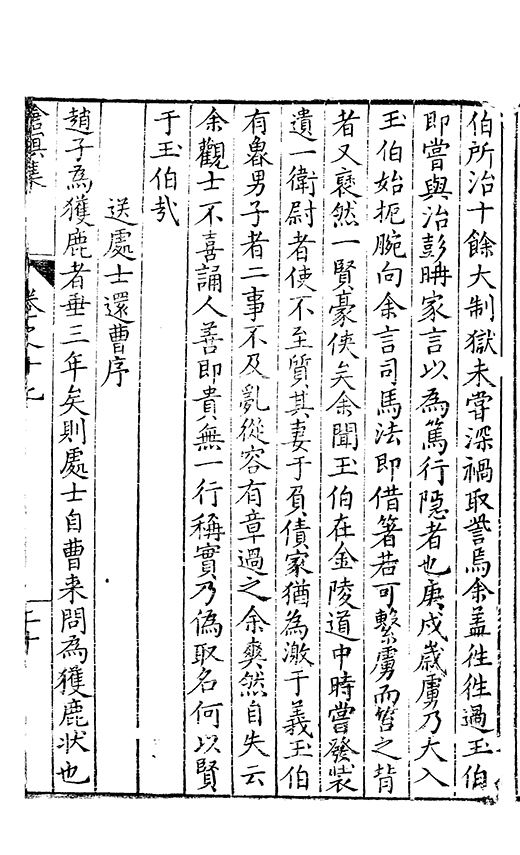 伯所治十餘大制獄未嘗深禍取訾焉余盖徃徃過玉伯
即嘗與治彭冉家言以為篤行隠者也庚戌歲虜乃大入
玉伯始扼腕向余言司馬法即借箸若可繫虜而笞之背
者又裒然一賢豪俠矣余聞玉伯在金陵道中時嘗發裝
遺一衛尉者使不至質其妻于負債家猶為激于義玉伯
有魯男子者二事不及亂從容有章過之余爽然自失云
余觀士不喜誦人善即貴無一行稱實乃偽取名何以賢
于玉伯㢤
送處士還曹序
趙子為獲鹿者垂三年矣則處士自曹来問為獲鹿状也
滄溟集
卷之十
二十